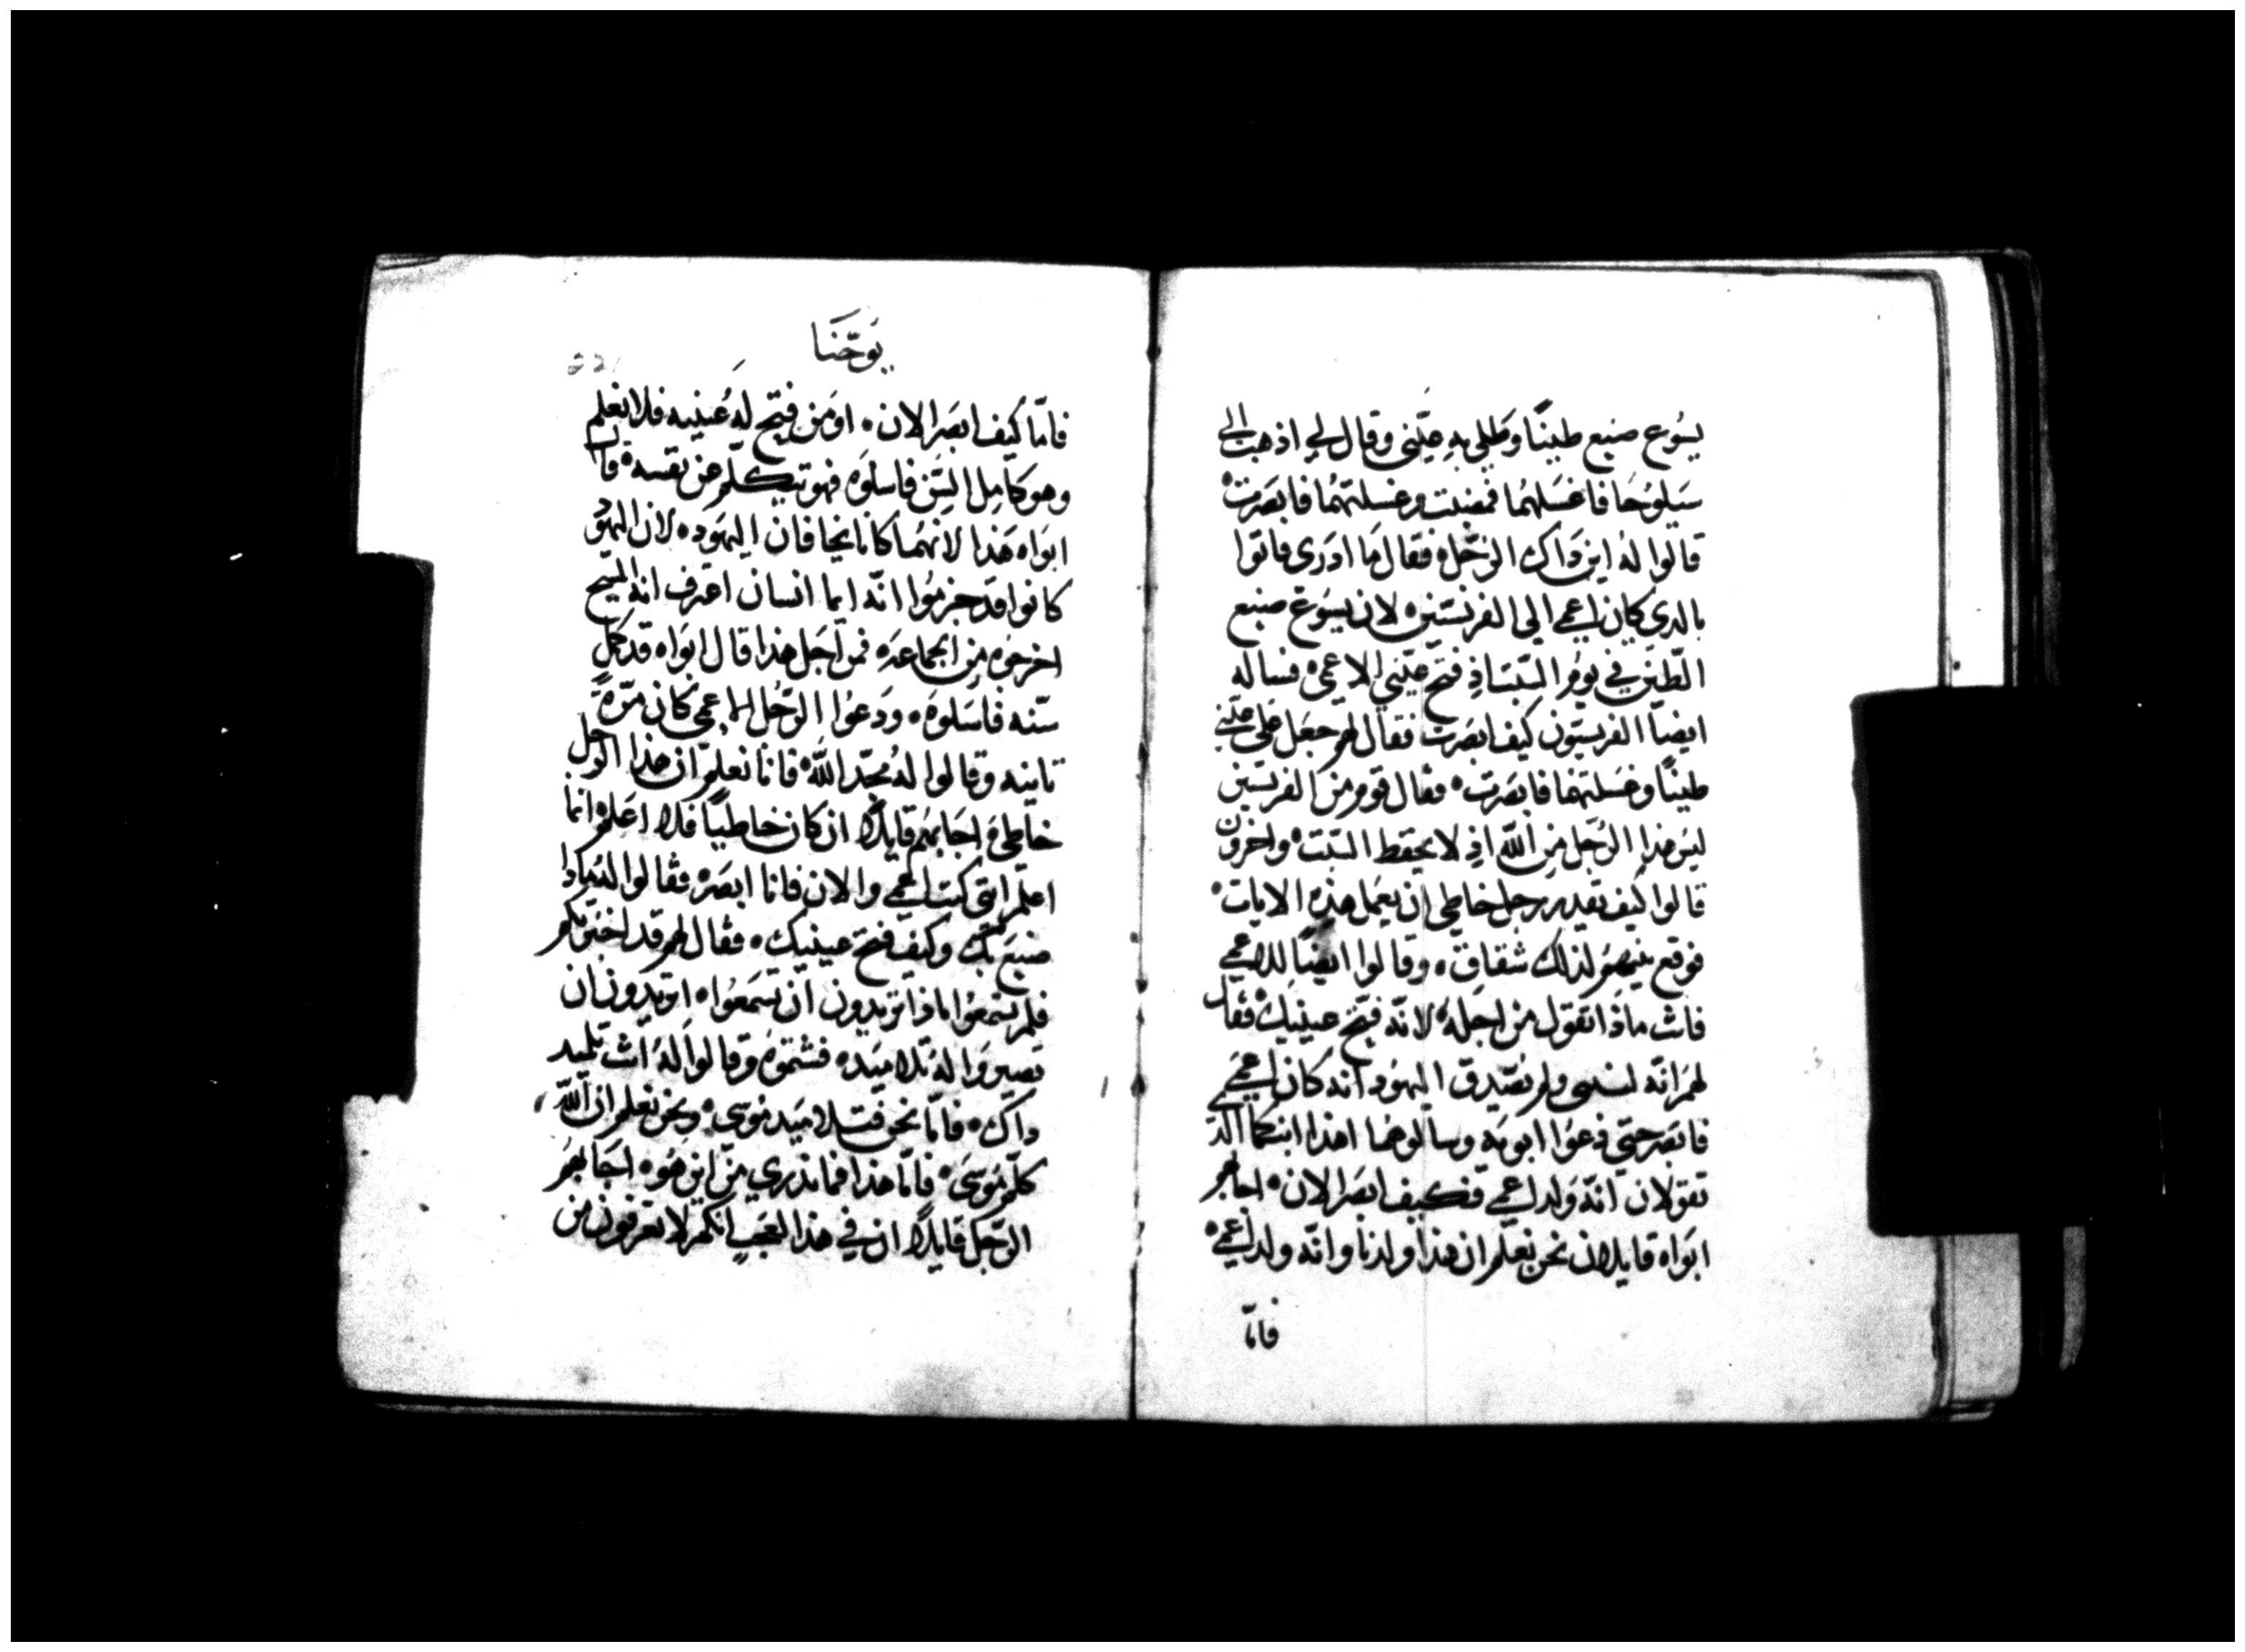 يسُوع صنع طينًا وطلي بهِ عيّني وقال لي اذهب الي
سَيلوُحَا فاغسَلهُما فمضيت وغسلتهُما فابصَرت ه
قالوا لهُ اين ذاك الرّجل ه فقال مَا ادرَى فاتوا
بالدى كان اعمي الي الفريسّين ه لان يسَوع صنع
الطّين في يوم السّبت اذِ فتح عيّني الاعمى ه فساله
ايضاً الفريسيّون كيف ابصَرت فقال لهم جعَل علي عيّني
طينًا وغسَلتهما فابصَرت ه فقال قوم من الفريسيّن
ليس هذا الرّجل من اللّه اذِ لا يحفظ السّبت ه واخرون
قالوا كيف يقدر رجل خاطي ان يعمل هذه الايات ه
فوقع بينهمُ لذلك شقاق ه وقالوا ايضًا للاعمي
فانت ماذا تقول من اجلهِ لانّه فتح عينيك ه فقال
لهمَ انّه لنبي ولم يصّدق اليهوُد انه كان اعمي
فابصَر حتي دعوُا ابويَه وسالوهما اهذا ابنكما الذ
تقولان انّه وَلد اعمي فكيف ابصَر الان ه اجابهم
ابوَاه قايلان نحن نعلم ان هذا ولدنا وانّه ولد اعمي ه
فامّا
يوَحّنا
فامّا كيف ابصَر الان ه اومَن فتح لهِ عُينيه فلا نعلم
وهو كامِل السّن فاسلوَه فهو يتكلّم عن نفسه ه قال
ابوَاه هَذا لانهُما كانا يخافان اليهَوده لان اليهوُد
كانوا قد جزموُا انّه ايما انسان اعترف انه المسيح
اخرجوُه من الجماعَة ه فمن اجَل هذا قال ابوَاه قد كمل
سّنه فاسَلوه ه ودَعوُا الرّجُل الاعمي كان مرّة
تانيه وقالوا لهُ مجّد اللّه ه فانا نعلم ان هذا الرّجل
خاطي ه اجَابهُم قايلًا ان كان خاطيًا فلا اعلم ه انما
اعلم اننّي كنت اعمي والان فانا ابصَر ه فقالوا لهُ ماذا
صنعَ بكَ وكيف فتح عينيك ه فقال لهم قد اخبرتكم
فلم تسمعَوُا ماذا تريدون ان تسمَعوُا ه اتريدون ان
تصيروَا لهُ تلاميَده فشتموُه وقالوا له انت تلميد
داك ه فامّا نحن فتلاميَد موُسي ه ونحن نعلم ان اللّه
كلّم موُسَي ه فامّا هذا فما ندري من اين هوُه اجَابهمُ
الرّجَل قايلًا ان في هذا لعَجبِ انكم لا تعرفون من